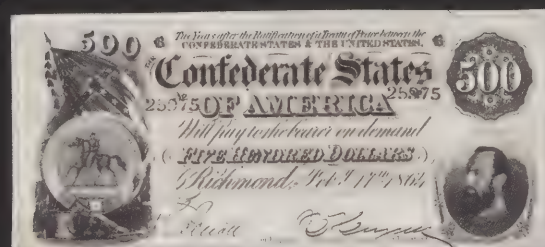 500
Two Years after the Ratification of a Treaty of Peace between the
CONFEDERATE STATES & THE UNITED STATES,
Confederate States
500
OF AMERICA
Will pay to the bearer on demand
FIVE HUNDRED DOLLARS
Richmond, Feb. 17th 1864